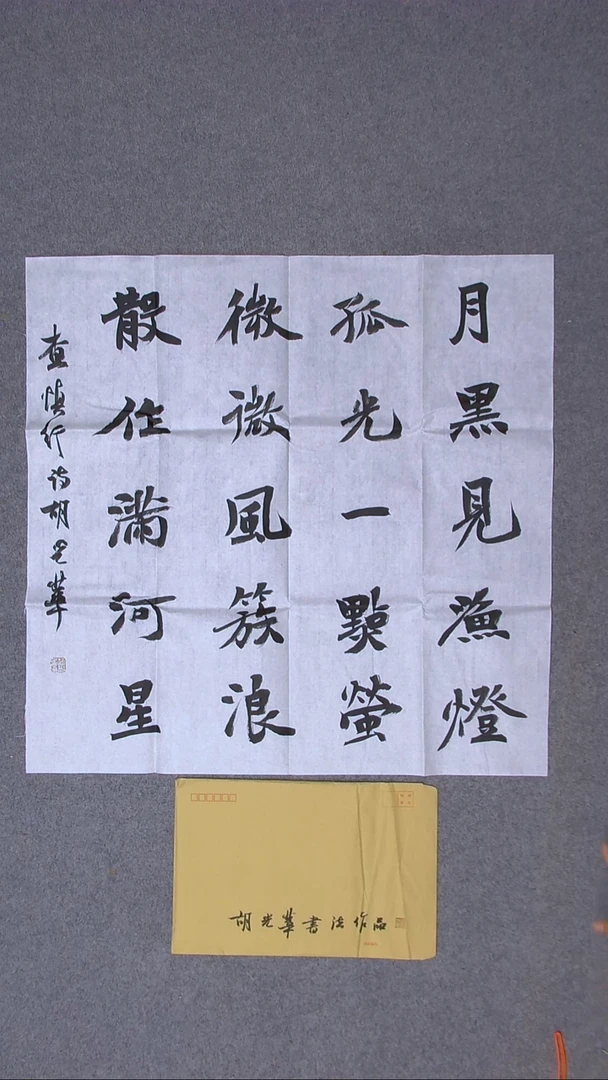 月黑見漁燈
孤光一點螢
微微風簇浪
散作滿河星
查慎行诗胡光華
胡光華書法作品